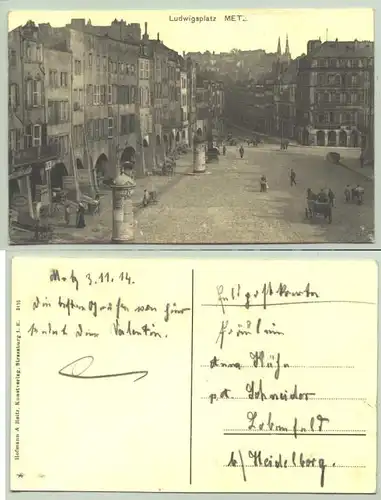 Ludwigsplatz METZ
Metz 3.11.14
Die besten Grüße von hier
sendet Dir Valentin.
Hofmann & Reitz, Kunstverlag, Strassburg i. E.
Feldpostkarte
Fräulein
Anna Kühn
pt. Schneider
Lobenfeld
b/ Heidelberg.